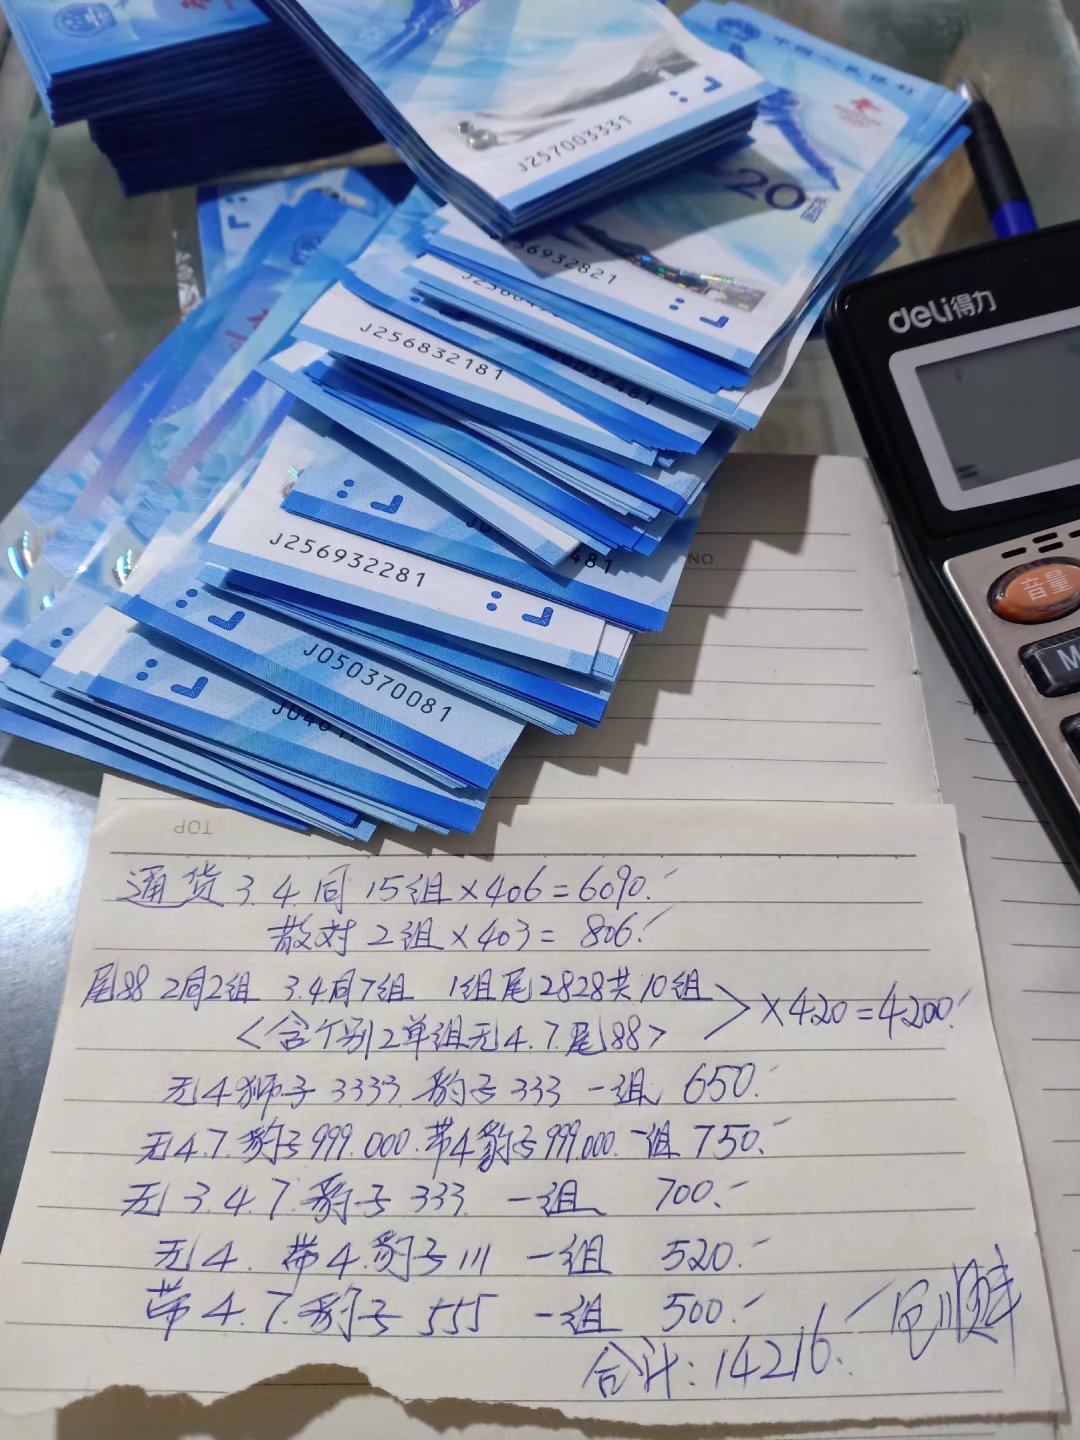 中国人民银行
J257003331
20
J256932821
J256832181
481
J256932281
481
J050370081
deli得力
音量
M
NO.
TOP
通货3.4.同15组×406=6090.
散对2组×403=806.
尾88 2同2组 3.4同7组 1组尾2828共10组
<含个别2单组无4.7.尾88> ×420=4200.
无4狮子3333.豹子333 一组 650.
无4.7.豹子999.000.带4豹子999.000.一组750.
无3.4.7.豹子333. 一组 700.
无4. 带4.豹子111 一组 520.
带4.7.豹子555 一组 500.
合计:14216. 包顺丰